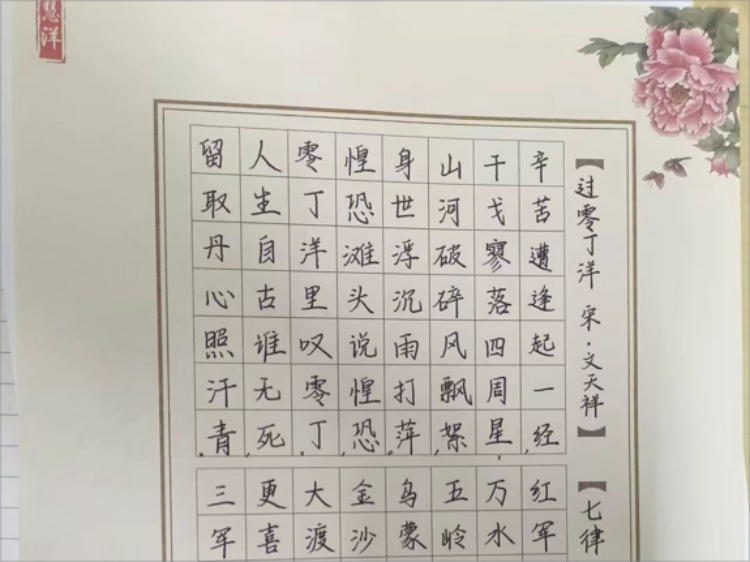 慧洋
【过零丁洋 宋·文天祥】
辛苦遭逢起一经，
干戈寥落四周星，
山河破碎风飘絮，
身世浮沉雨打萍。
惶恐滩头说惶恐，
零丁洋里叹零丁，
人生自古谁无死，
留取丹心照汗青。
【七律
红军
万水
五岭
乌蒙
金沙
大渡
更喜
三军